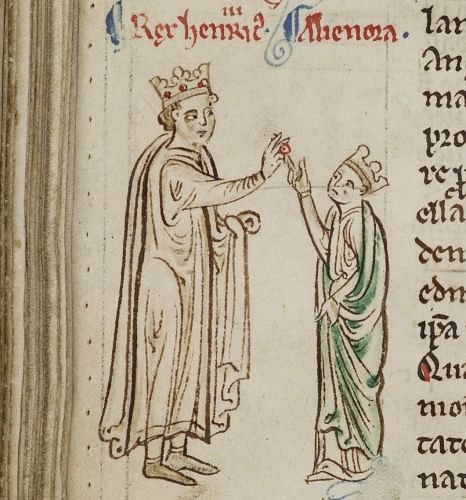 iii
Rex henric᷒. Alienora.
lan
An
ma
pro
ella
den
edm
ip̄a
Qu
mo
tate
nat